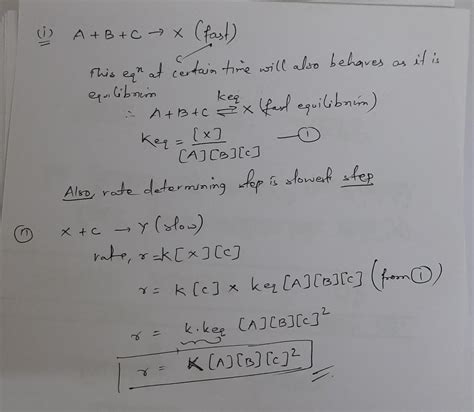 (i) A + B + C → X (fast)
This eqn at certain time will also behaves as it is
equilibrium
∴ A + B + C ⇌ X (fast equilibrium)
keq
Keq = [X] / [A][B][C] — ①
Also, rate determining step is slowest step
(ii) X + C → Y (slow)
rate, r = k[X][C]
r = k[C] × keq [A][B][C] (from ①)
r = k.keq [A][B][C]²
r = K[A][B][C]²